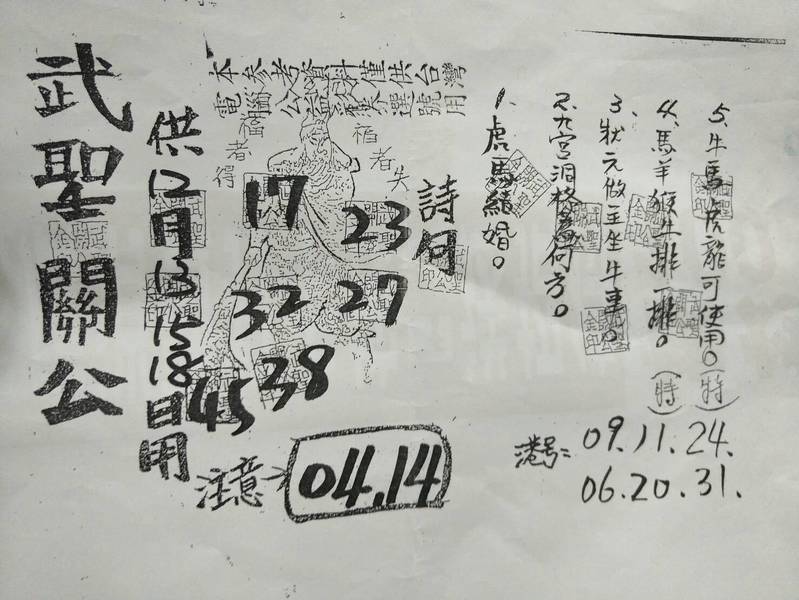 武聖關公
供12月13 15 18日用
本參考資料僅供台灣
電腦公益彩選號用
者得
者失
17
23
32
27
38
45
注意→
04.14
詩句
1、虎馬結婚。
2、九宮洞格 何方。
3、狀元做主坐牛車。
4、馬羊猴牛排一排。(特)
5、牛馬虎龍可使用。(特)
港号:09.11.24.
06.20.31.